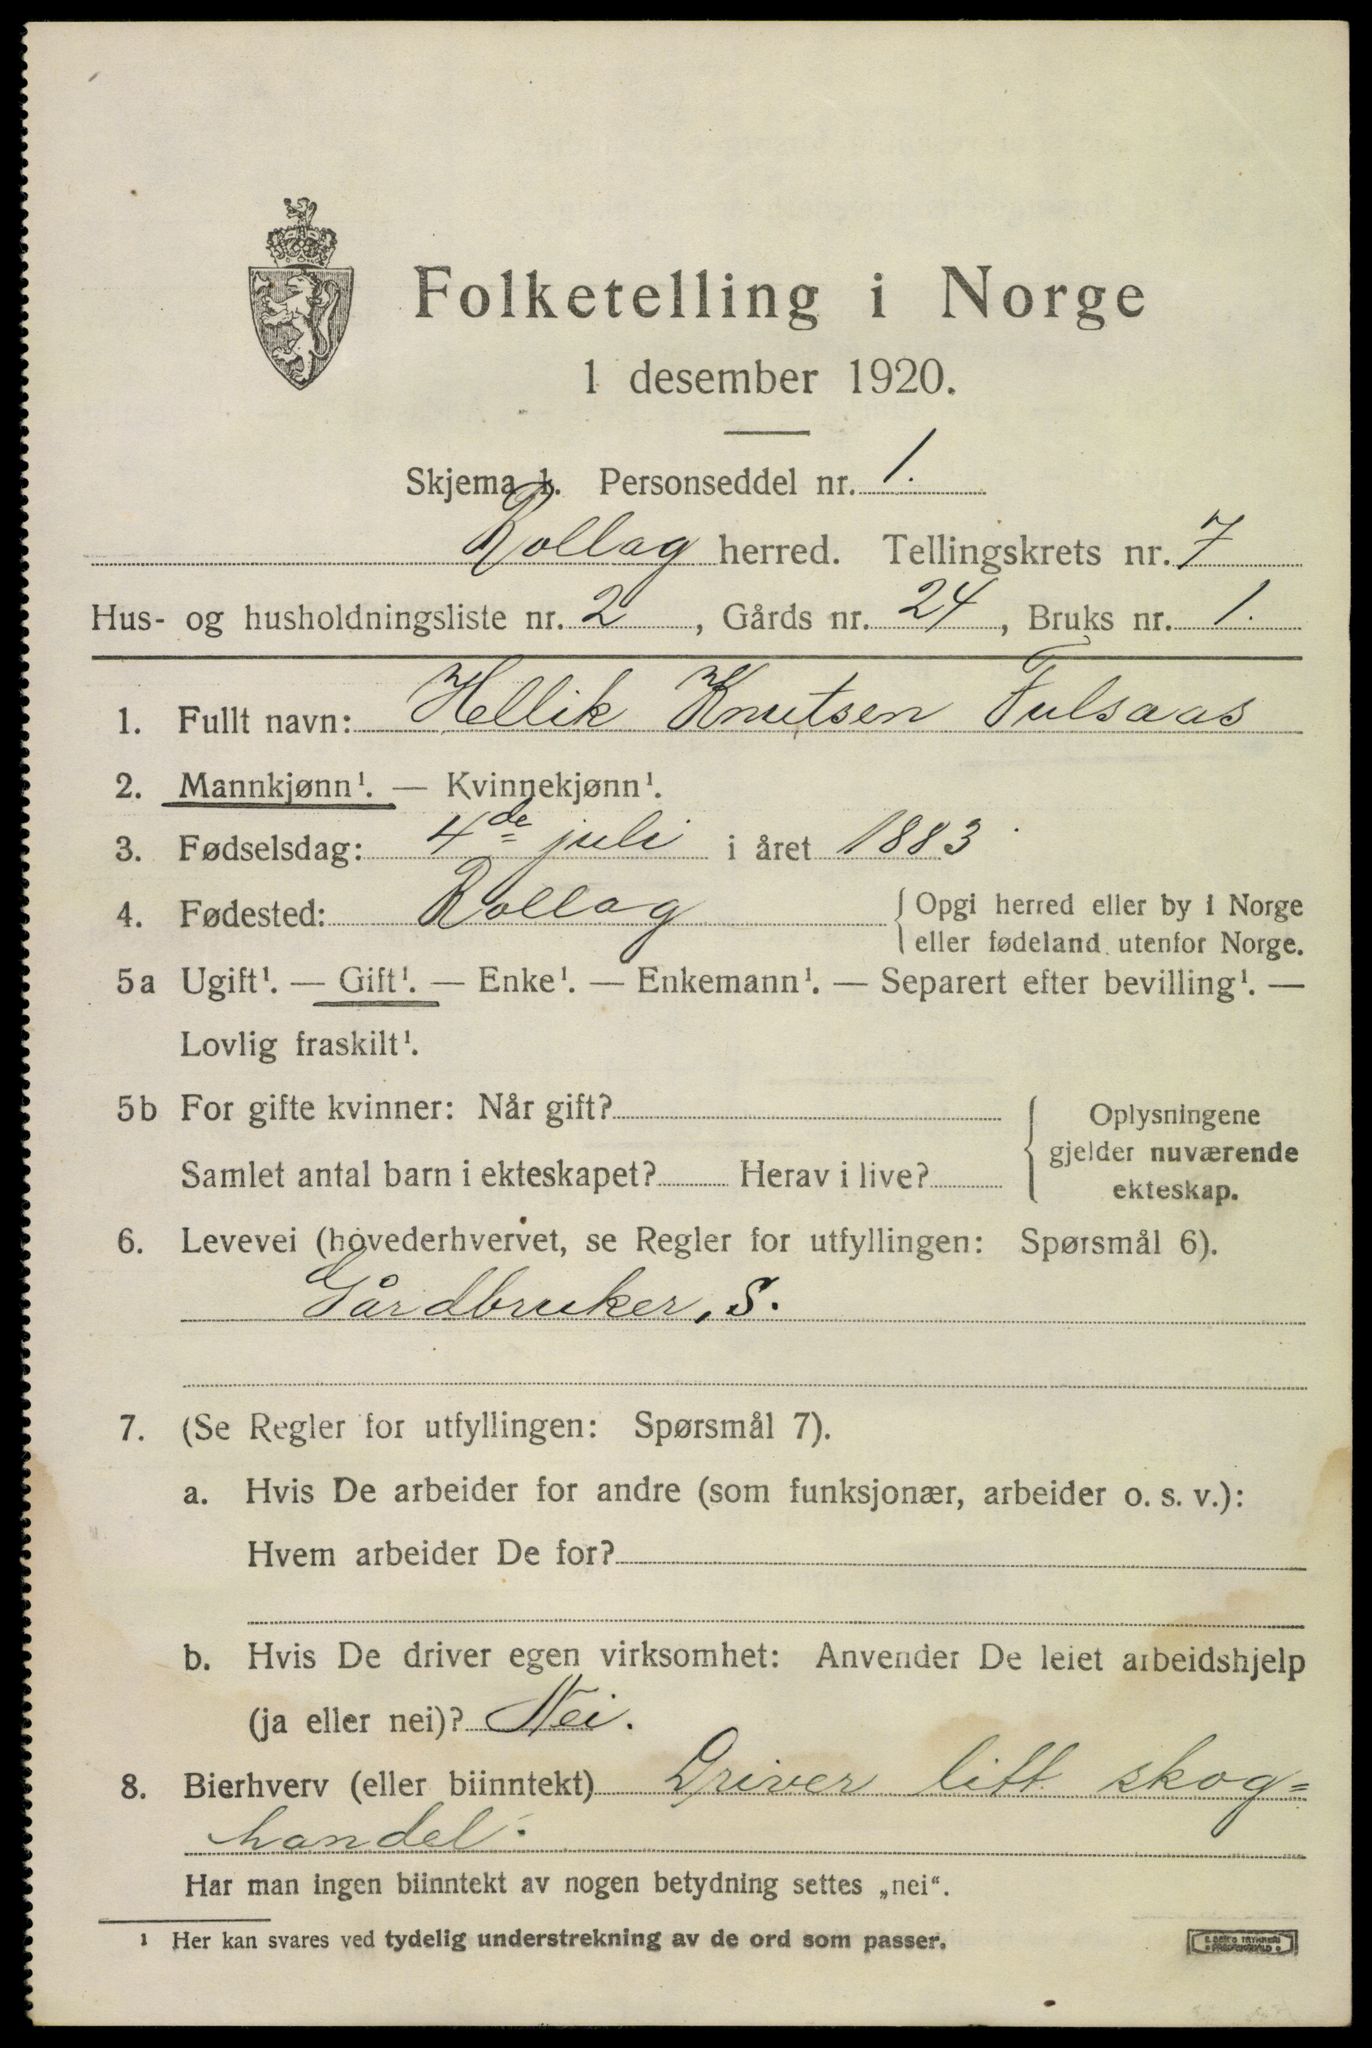 Folketelling i Norge
1 desember 1920.
Skjema 1. Personseddel nr. 1.
Rollag herred. Tellingskrets nr. 7
Hus- og husholdningsliste nr. 2, Gårds nr. 24, Bruks nr. 1.
1. Fullt navn: Hellik Knutsen Fulsaas
2. Mannkjønn¹. — Kvinnekjønn¹.
3. Fødselsdag: 4de juli i året 1883
4. Fødested: Rollag { Opgi herred eller by i Norge
eller fødeland utenfor Norge.
5a Ugift¹. — Gift¹. — Enke¹. — Enkemann¹. — Separert efter bevilling¹. —
Lovlig fraskilt¹.
5b For gifte kvinner: Når gift? { Oplysningene
gjelder nuværende
Samlet antal barn i ekteskapet? Herav i live?
ekteskap.
6. Levevei (hovederhvervet, se Regler for utfyllingen: Spørsmål 6).
Gårdbruker, S.
7. (Se Regler for utfyllingen: Spørsmål 7).
a. Hvis De arbeider for andre (som funksjonær, arbeider o. s. v.):
Hvem arbeider De for?
b. Hvis De driver egen virksomhet: Anvender De leiet arbeidshjelp
(ja eller nei)? Nei.
8. Bierhverv (eller biinntekt) Driver litt skog=
handel.
Har man ingen biinntekt av nogen betydning settes „nei“.
¹ Her kan svares ved tydelig understrekning av de ord som passer.